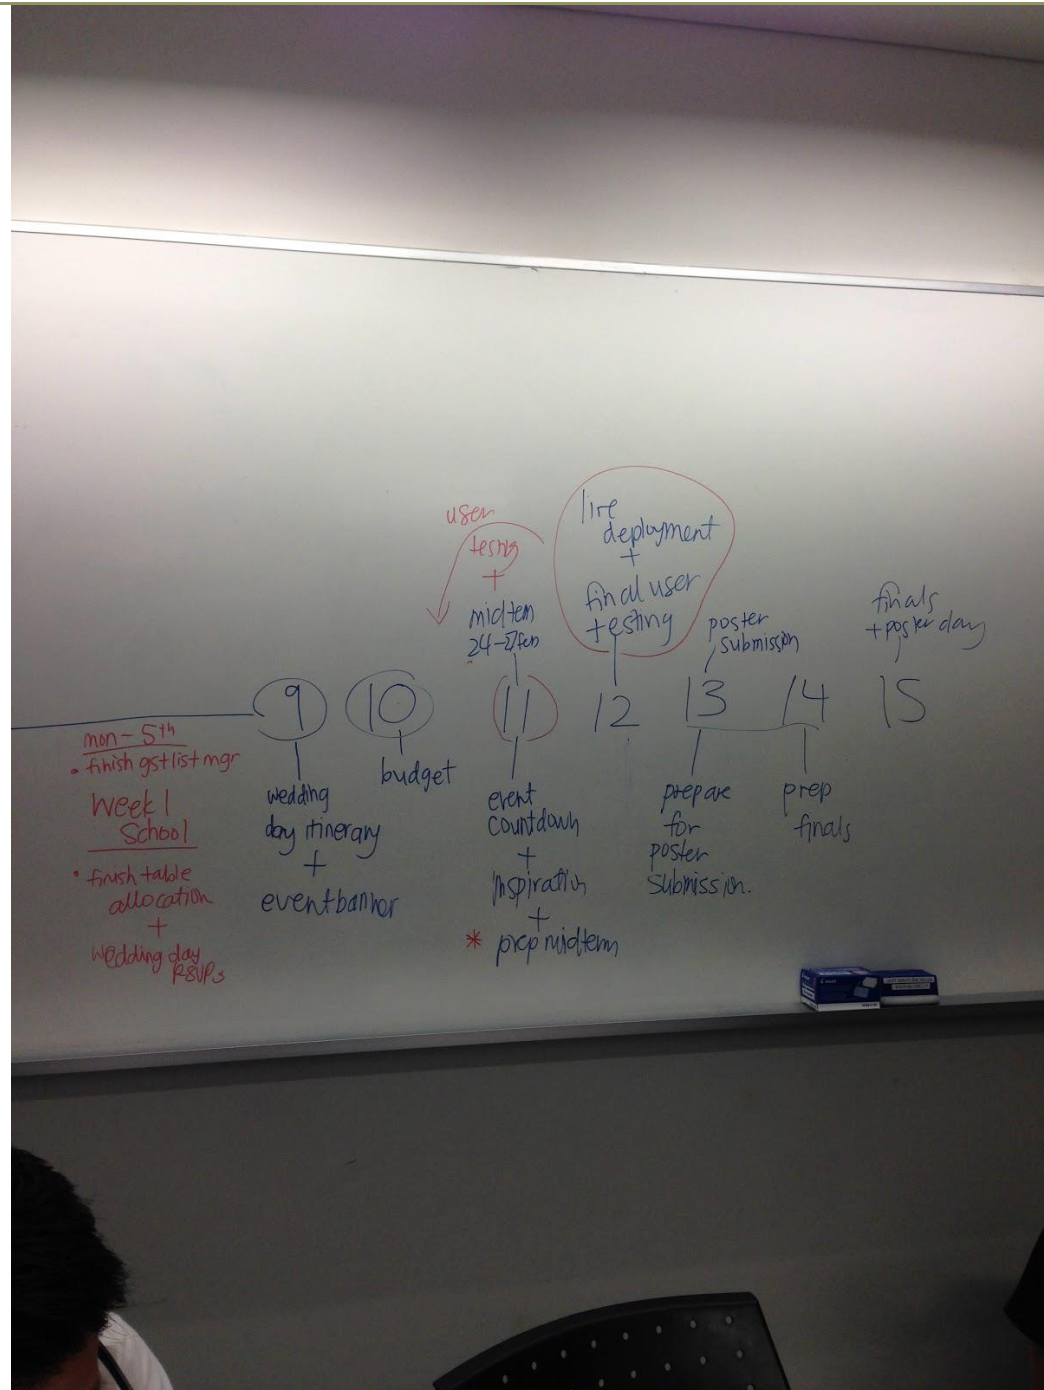 user
testing
+
midterm
24-27 feb
live
deployment
+
final user
testing
poster
submission
finals
+ poster day
9
10
11
12
13
14
15
mon - 5th
• finish gst list mgr
Week 1
School
• finish table
allocation
+
wedding day
RSVPs
wedding
day itinerary
+
event banner
budget
event
countdown
+
inspiration
+
* prep midterm
prepare
for
poster
submission.
prep
finals